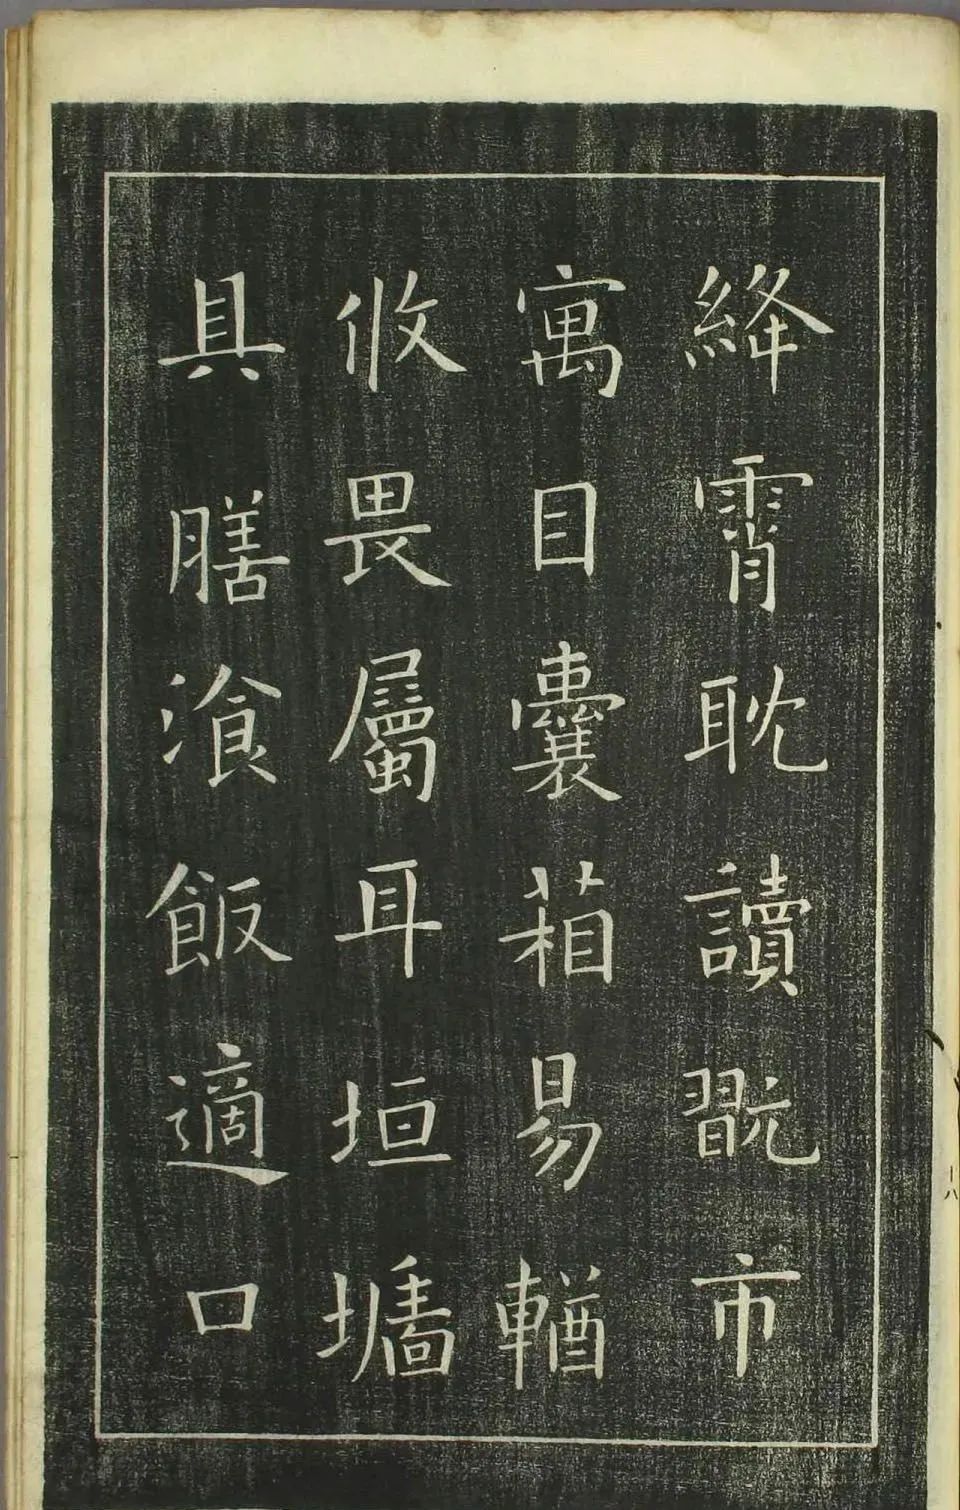 絳霄耽讀翫市
寓目囊葙易輶
攸畏屬耳垣墻
具膳飡飯適口